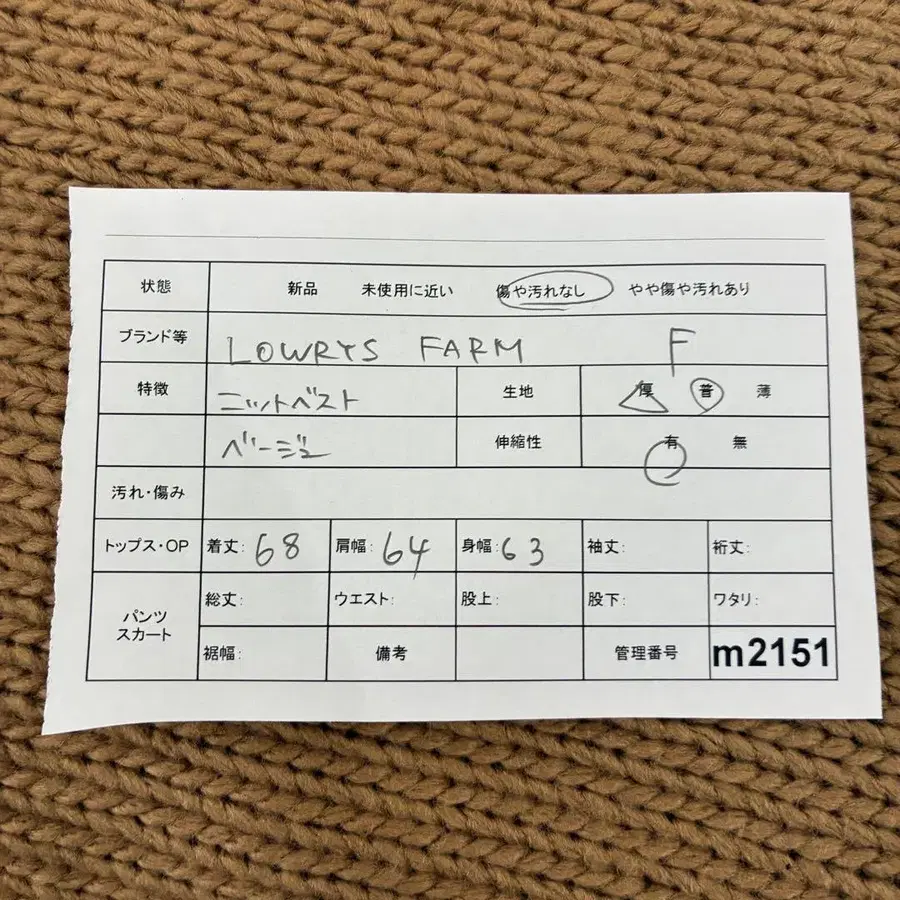 状態 新品 未使用に近い 傷や汚れなし やや傷や汚れあり
ブランド等 LOWRYS FARM F
特徴 ニットベスト 生地 厚 普 薄
ベージュ 伸縮性 有 無
汚れ・傷み
トップス・OP 着丈: 68 肩幅: 64 身幅: 63 袖丈: 裄丈:
パンツ スカート 総丈: ウエスト: 股上: 股下: ワタリ:
裾幅: 備考 管理番号 m2151